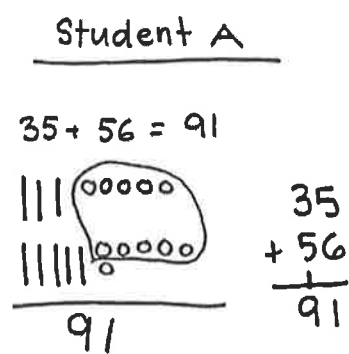 Student A
35 + 56 = 91
91
35
+ 56
1
91